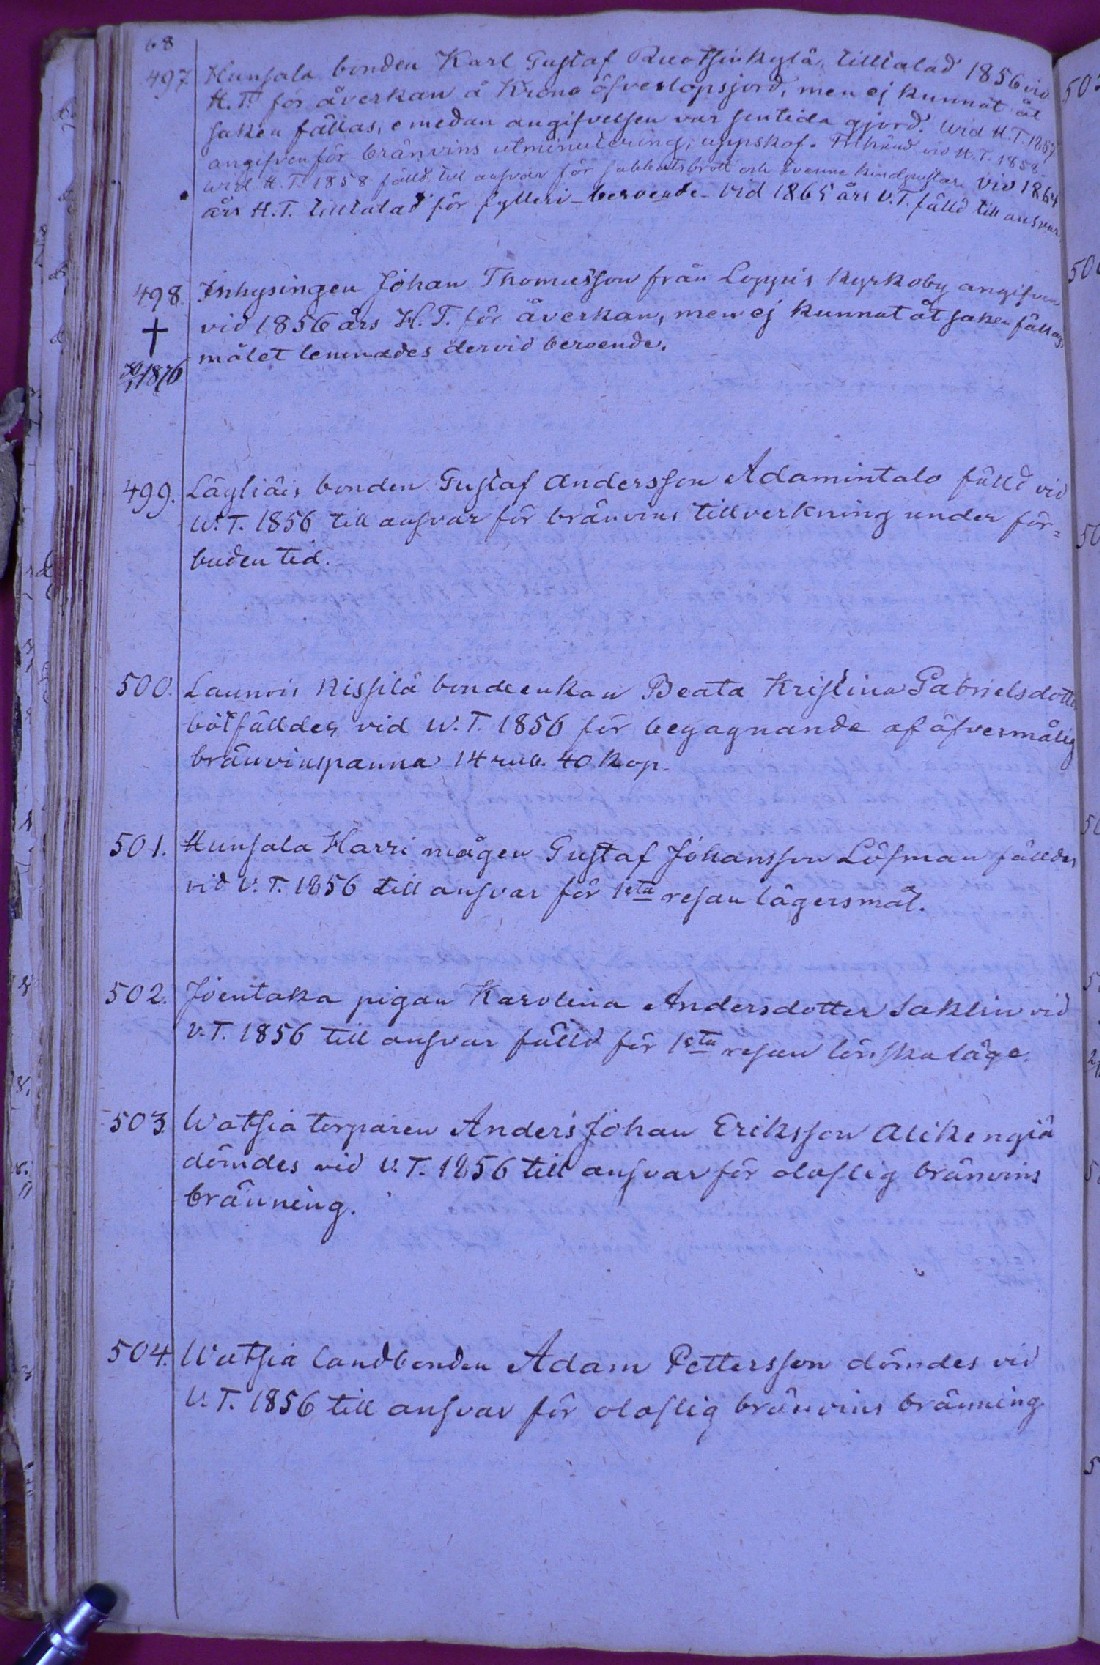 68
497 Hunsala bonden Karl Gustaf Ruotsinkylä, tilltalad 1856 vid
H.T. för åverkan å Krono öfverlopsjord, men ej kunnat åt
saken fällas, emedan angifvelsen var sentida gjord. Wid H.T. 1857
angifven för bränvins utminutering, uppskof. Frikänd vid H.T. 1858.
Wid H.T. 1858 fälld till ansvar för sabbatsbrott och tvenne kindpustar. Vid 1864
års H.T. tilltalad för fylleri - beroende - Vid 1865 års V.T. fälld till ansvar.
498. Inhysingen Johan Thomasson från Loppis kyrkoby angifven
vid 1856 års H.T. för åverkan, men ej kunnat åt saken fällas,
målet lemnades dervid beroende.
1876
499. Läyliäis bonden Gustaf Andersson Adamintalo fälld vid
W.T. 1856 till ansvar för bränvins tillverkning under för-
buden tid.
500. Launois Nissilä bondeenkan Beata Kristina Gabrielsdotter
bötfälldes vid W.T. 1856 för begagnande af öfvermålig
bränvinspanna 14 rub. 40 kop.
501. Hunsala Harri mågen Gustaf Johansson Löfman fälldes
vid V.T. 1856 till ansvar för 1sta resan lägersmål.
502. Joentaka pigan Karolina Andersdotter Saklin vid
V.T. 1856 till ansvar fälld för 1sta resan lönskaläge.
503. Watsia torparen Anders Johan Eriksson Alikengiä
dömdes vid V.T. 1856 till ansvar för olaflig bränvins
bränning.
504. Watsia landbonden Adam Pettersson dömdes vid
V.T. 1856 till ansvar för olaflig bränvins bränning